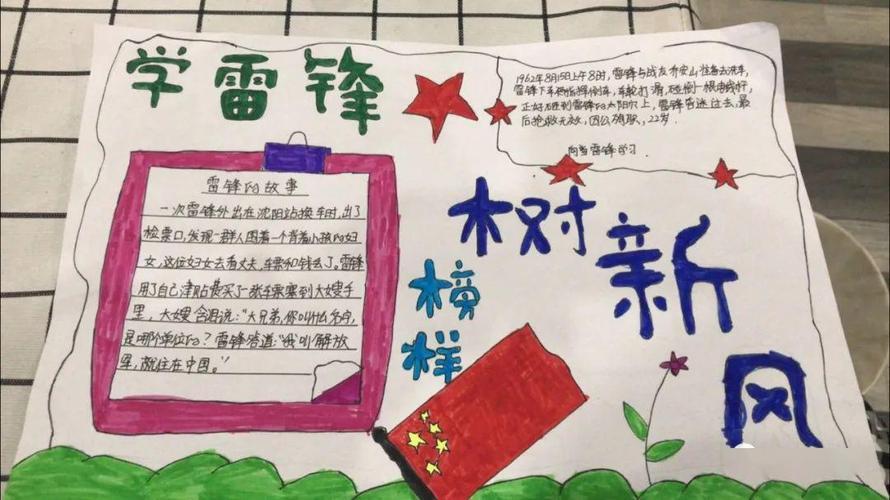 学雷锋
1962年8月15日上午8时,雷锋与战友乔安山准备去洗车,
雷锋下车指挥倒车,车轮打滑,碰倒一根电线杆,
正好砸到雷锋的太阳穴上,雷锋昏迷过去,最
后抢救无效,因公殉职,22岁.
向雷锋学习.
雷锋的故事
一次雷锋外出在沈阳站换车时,出了
检票口,发现一群人围着一个背着小孩的妇
女,这位妇女去看丈夫,车票和钱丢了。雷锋
用了自己津贴费买了一张车票塞到大嫂手
里,大嫂含泪说:"大兄弟,你叫什么名字,
是哪个单位的?雷锋答道:"我叫解放
军,就住在中国。"
榜样
树新风